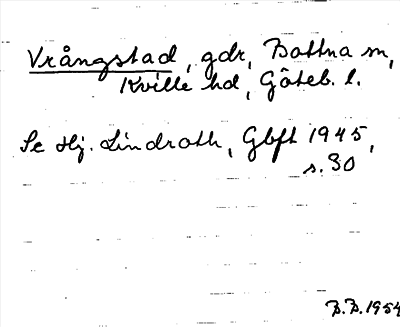 Vrångstad, gdr, Bottna sn,
Kville hd, Göteb. l.
Se Hj. Lindroth, Gbft 1945,
s. 30
B.B. 1954